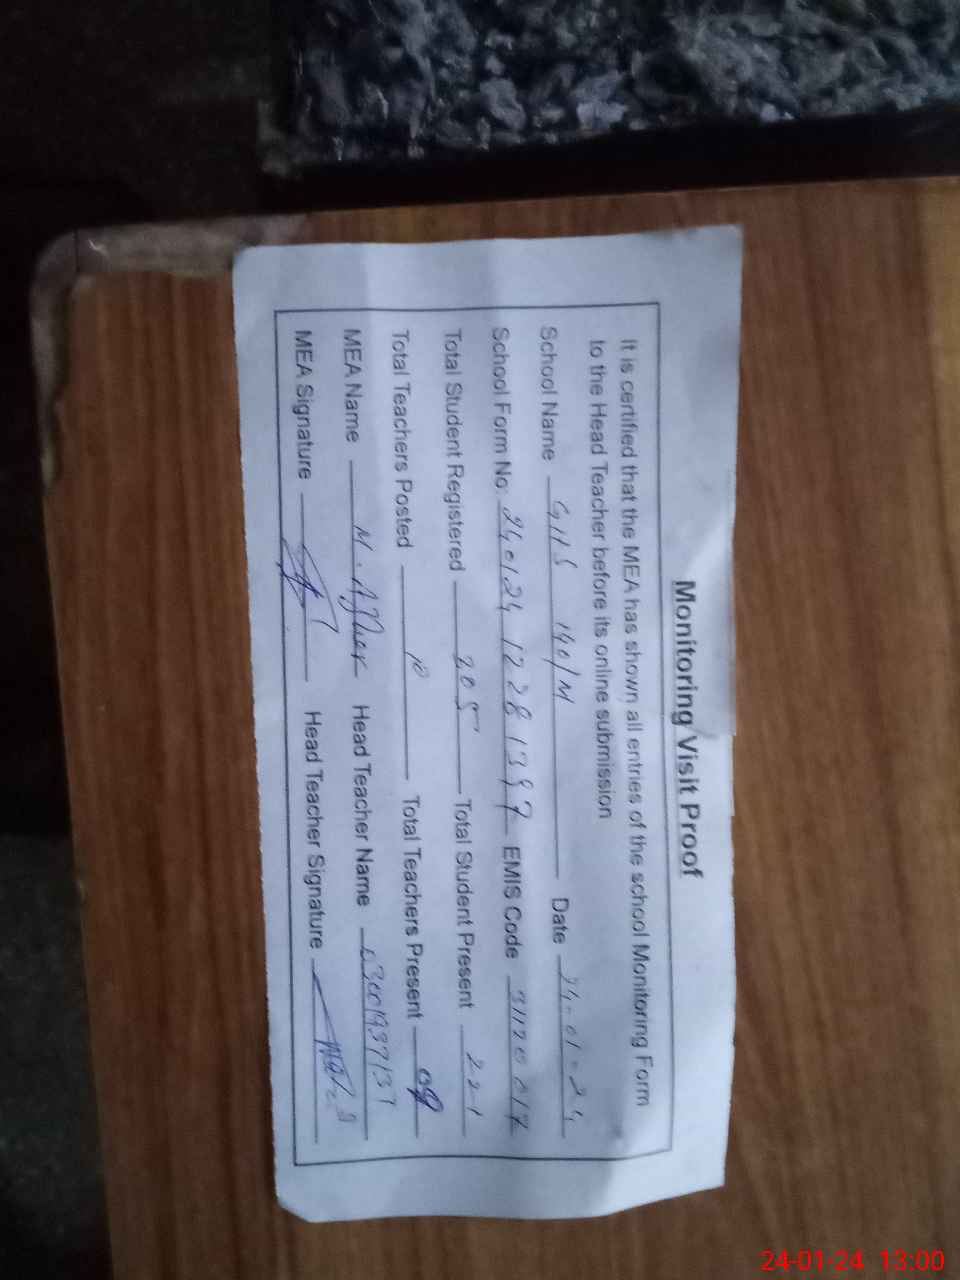 Monitoring Visit Proof
It is certified that the MEA has shown all entries of the school Monitoring Form
to the Head Teacher before its online submission
School Name GHS 140/M Date 24-01-24
School Form No: 240124 1228 1397 EMIS Code 31120017
Total Student Registered 205 Total Student Present 221
Total Teachers Posted 10 Total Teachers Present 09
MEA Name M. Head Teacher Name 03001937137
MEA Signature Head Teacher Signature
24-01-24 13:00